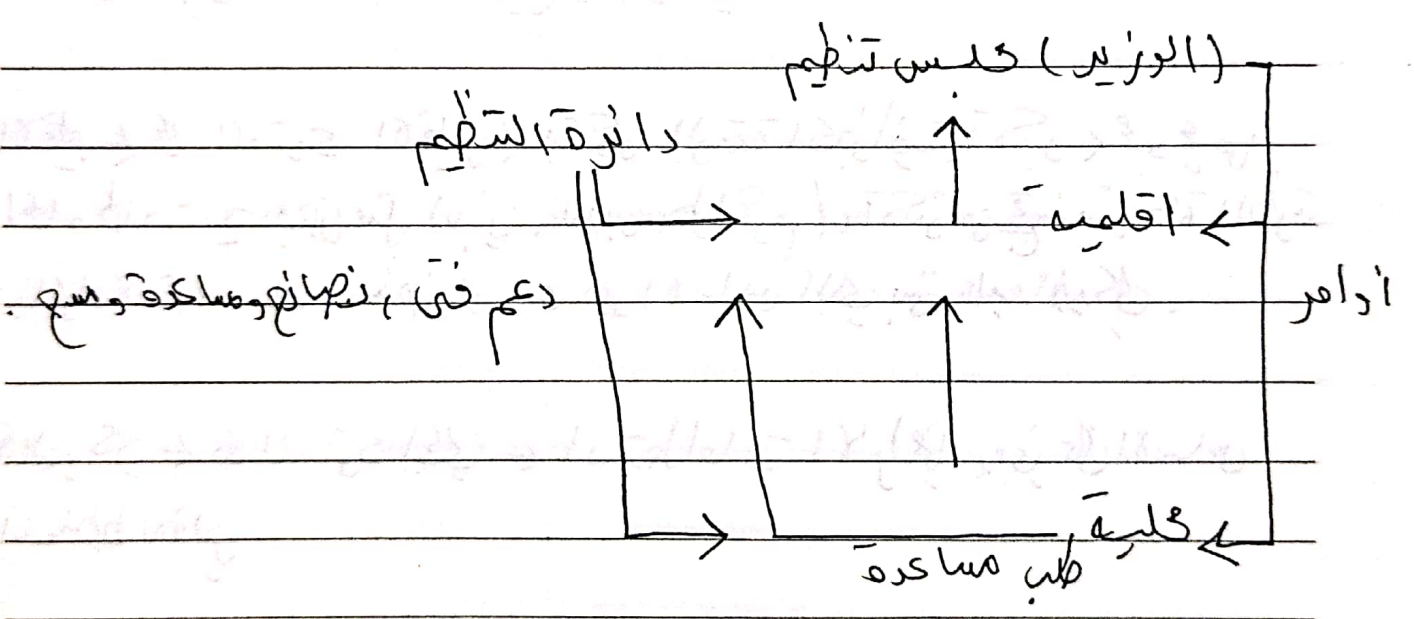 (الوزير) مجلس تنظيم
دائرة التنظيم
اقليمية
أوامر
دعم فني، نصائح ومساعدة و
محلية
طلب مساعدة